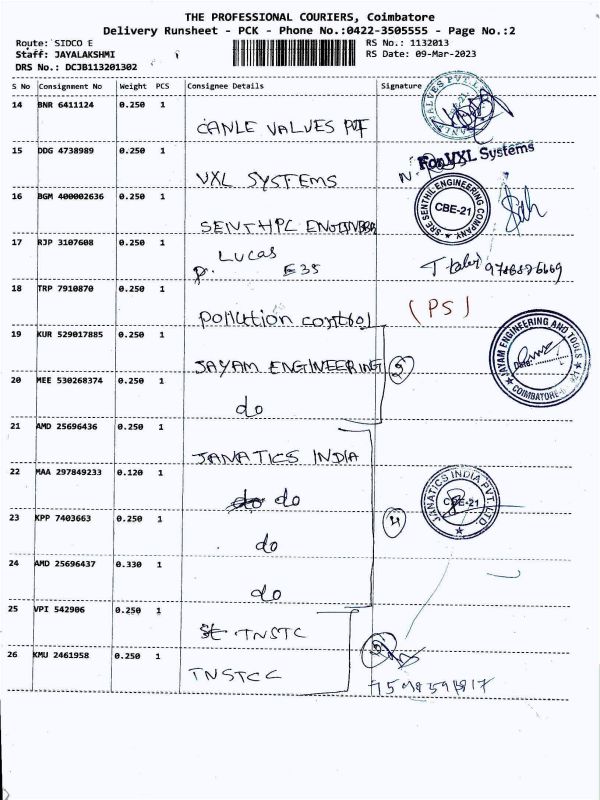 THE PROFESSIONAL COURIERS, Coimbatore
Delivery Runsheet - PCK - Phone No.:0422-3505555 - Page No.:2
Route: SIDCO E
RS No.: 1132013
Staff: JAYALAKSHMI
RS Date: 09-Mar-2023
DRS No.: DCJB113201302
S No Consignment No Weight PCS Consignee Details Signature
14 BNR 6411124 0.250 1
CANLE VALVES PVT
15 DDG 4738989 0.250 1
For VXL Systems
VXL SYSTEMS
16 BGM 400002636 0.250 1
SRE SENTHIL ENGINEERING COMPANY
CBE-21
SENTHPL
17 RJP 3107608 0.250 1
LUCAS
P. E35
18 TRP 7910870 0.250 1
(PS)
Pollution control
19 KUR 529017885 0.250 1
JAYAM ENGINEERING AND TOOLS
Date:
COIMBATORE
JAYAM ENGINEERING 2
20 MEE 530268374 0.250 1
do
21 AMD 25696436 0.250 1
JANATICS INDIA
22 MAA 297849233 0.120 1
JANATICS INDIA PVT. LTD.
CBE-21
do do
23 KPP 7403663 0.250 1
4
do
24 AMD 25696437 0.330 1
do
25 VPI 542906 0.250 1
St TNSTC
26 KMU 2461958 0.250 1
TNSTCC